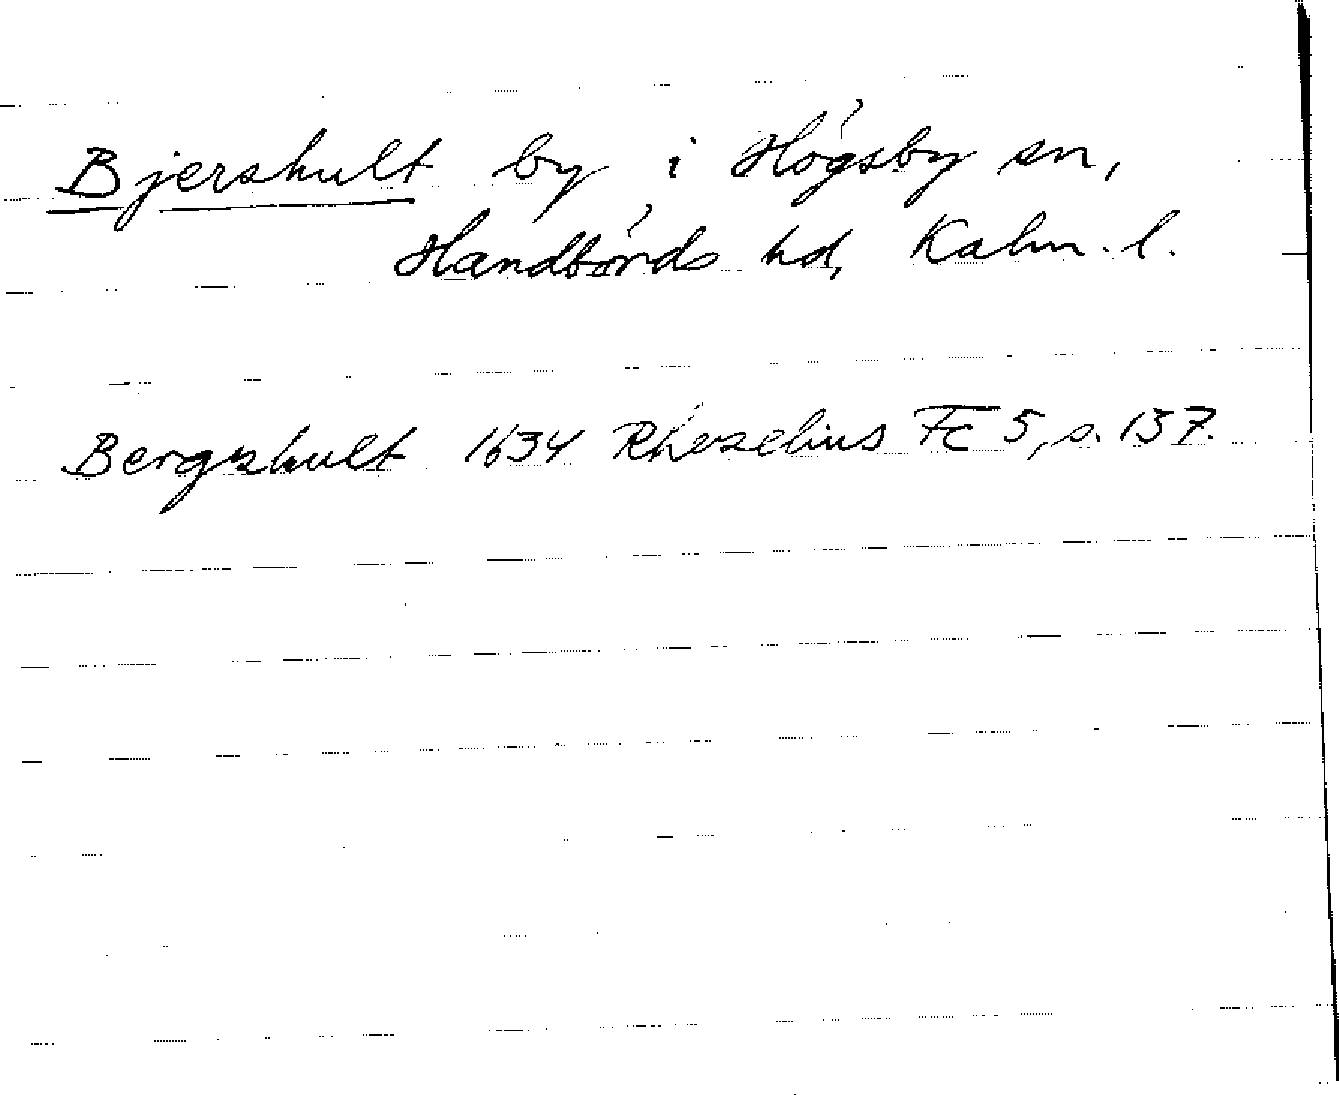 Bjershult by i Högsby sn,
Handbörds hd, Kalm. l.
Bergshult 1634 Rhezelius Fc 5, s. 137.